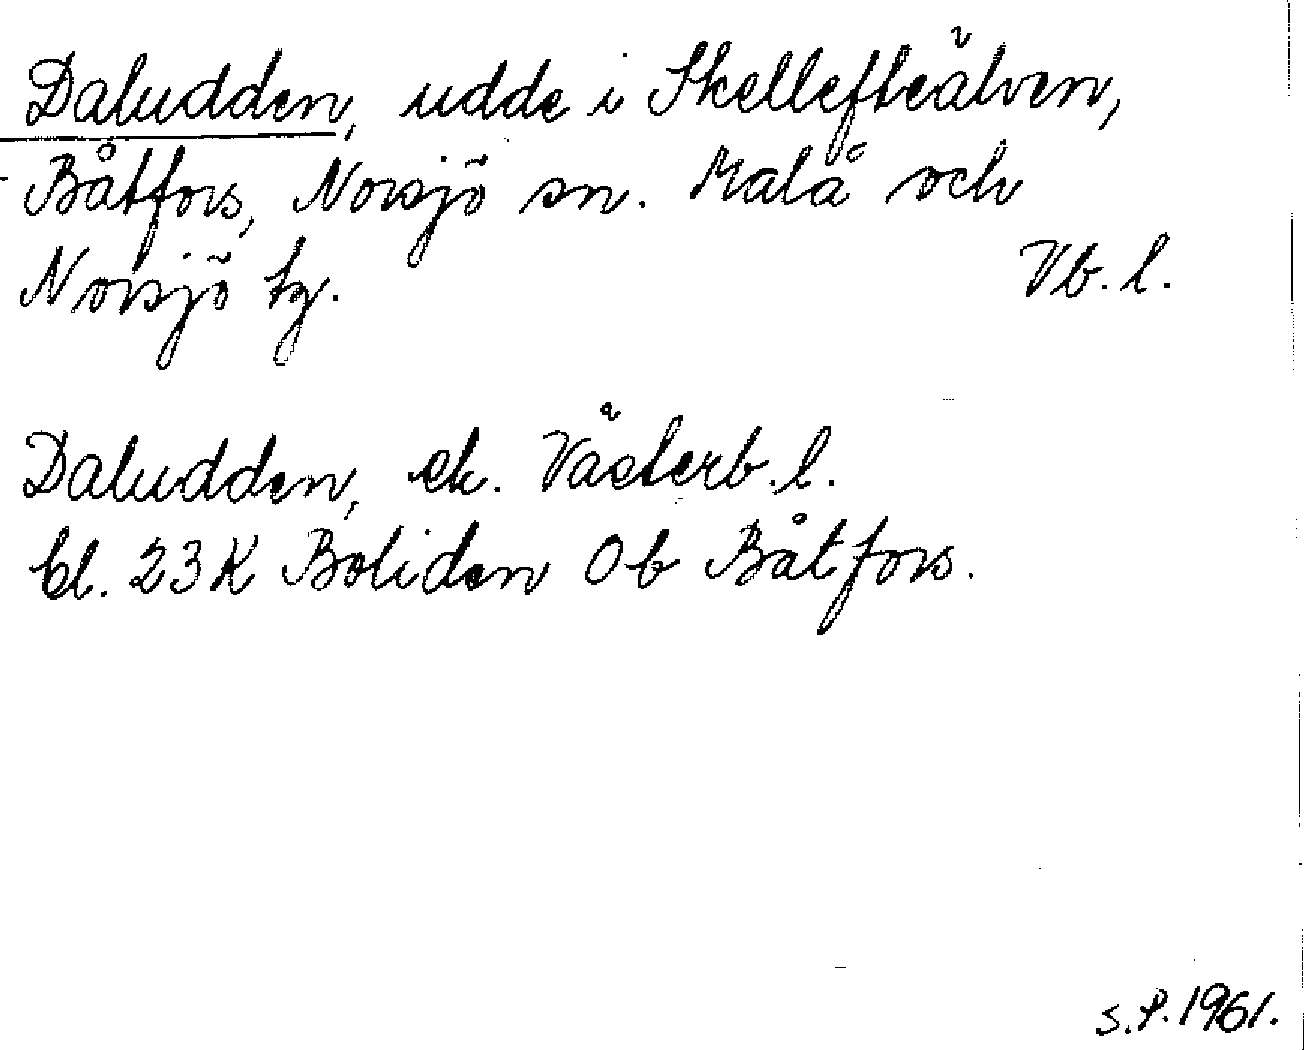 Daludden, udde i Skellefteälven,
Båtfors, Norsjö sn. Malå och
Norsjö tg. Vb. l.
Daludden, ek. Västerb. l.
bl. 23K Boliden Ob Båtfors.
S.P. 1961.